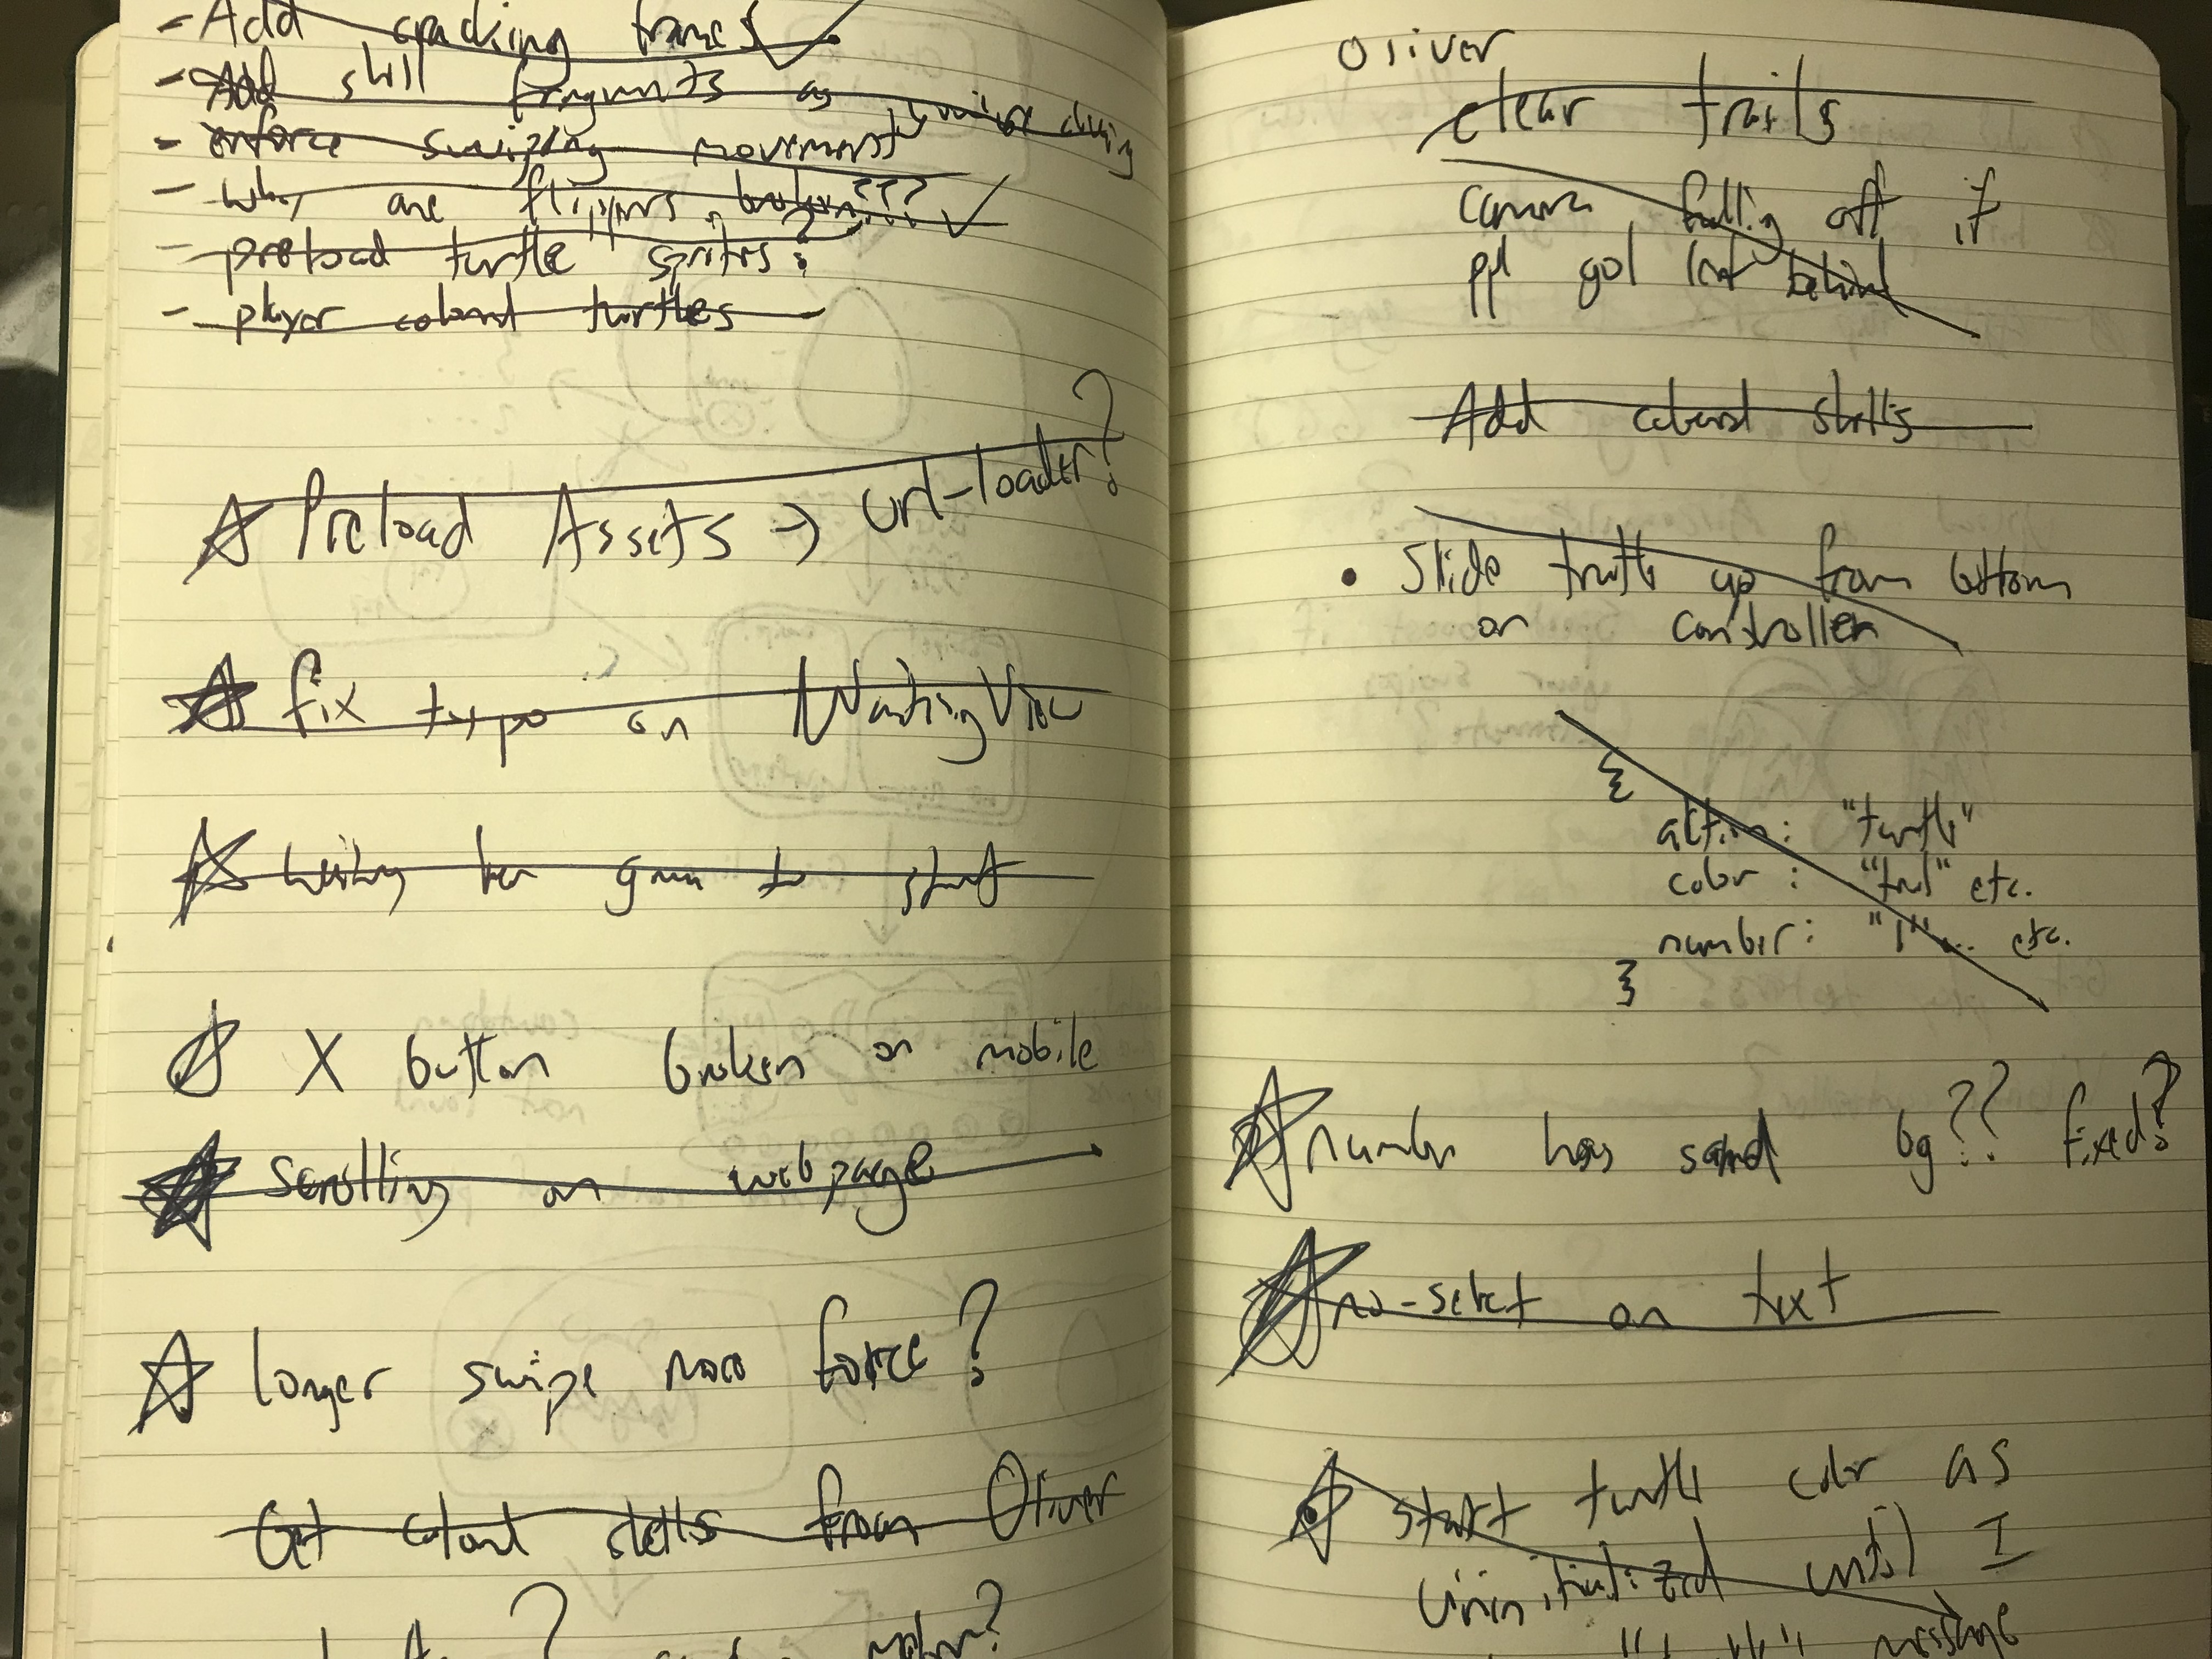 - Add cracking frames
- Add shell fragments as
- enforce swiping movement
- why are flippers broken???
- preload turtle sprites?
- player colored turtles
Preload Assets → url-loader?
fix typo on WaitingView
Waiting for game to start
X button broken on mobile
Scrolling on webpage
longer swipe more force?
Get colored shells from Oliver
Oliver
clear trails
camera falling off if
ppl got left behind
Add colored shells
• Slide turtle up from bottom
on controller
{
action: "turtle"
color: "red" etc.
number: "1"... etc.
}
number has sand bg?? fixed?
no-select on text
start turtle color as
uninitialized until I
message